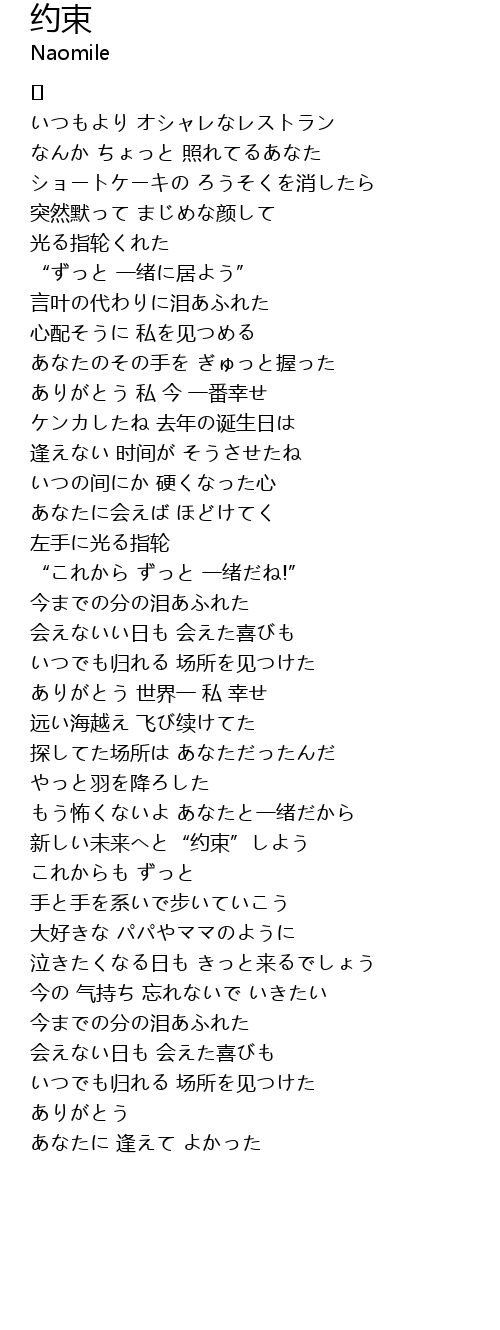 约束
Naomile
[]
いつもより オシャレなレストラン
なんか ちょっと 照れてるあなた
ショートケーキの ろうそくを消したら
突然默って まじめな顔して
光る指轮くれた
“ずっと 一绪に居よう”
言叶の代わりに泪あふれた
心配そうに 私を见つめる
あなたのその手を ぎゅっと握った
ありがとう 私 今 一番幸せ
ケンカしたね 去年の诞生日は
逢えない 时间が そうさせたね
いつの间にか 硬くなった心
あなたに会えば ほどけてく
左手に光る指轮
“これから ずっと 一绪だね!”
今までの分の泪あふれた
会えないい日も 会えた喜びも
いつでも归れる 场所を见つけた
ありがとう 世界一 私 幸せ
远い海越え 飞び续けてた
探してた场所は あなただったんだ
やっと羽を降ろした
もう怖くないよ あなたと一绪だから
新しい未来へと “约束” しよう
これからも ずっと
手と手を系いで步いていこう
大好きな パパやママのように
泣きたくなる日も きっと来るでしょう
今の 气持ち 忘れないで いきたい
今までの分の泪あふれた
会えない日も 会えた喜びも
いつでも归れる 场所を见つけた
ありがとう
あなたに 逢えて よかった